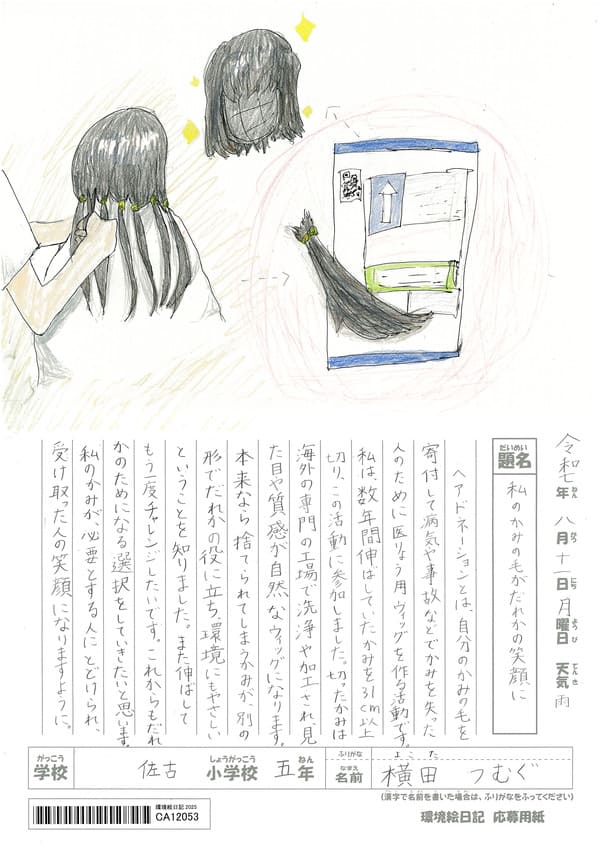 令和七年 八月 十一日 月曜日 天気 雨
ねん がつ にち ようび てんき
だいめい
題名
私のかみの毛がだれかの笑顔に
ヘアドネーションとは、自分のかみの毛を
寄付して病気や事故などでかみを失った
人のために医りょう用ウィッグを作る活動です。
私は、数年間伸ばしていたかみを31cm以上
切り、この活動に参加しました。切ったかみは
海外の専門の工場で洗浄や加工され、見
た目や質感が自然なウィッグになります。
本来なら捨てられてしまうかみが、別の
形でだれかの役に立ち、環境にもやさしい
ということを知りました。また伸ばして
もう一度チャレンジしたいです。これからもだれ
かのためになる選択をしていきたいと思います。
私のかみが、必要とする人にとどけられ、
受け取った人の笑顔になりますように。
がっこう しょうがっこう ねん
学校 佐古 小学校 五年
ふりがな よこ た
なまえ
名前 横田 つむぐ
(漢字で名前を書いた場合は、ふりがなをふってください)
環境絵日記 応募用紙
環境絵日記 2025
CA12053